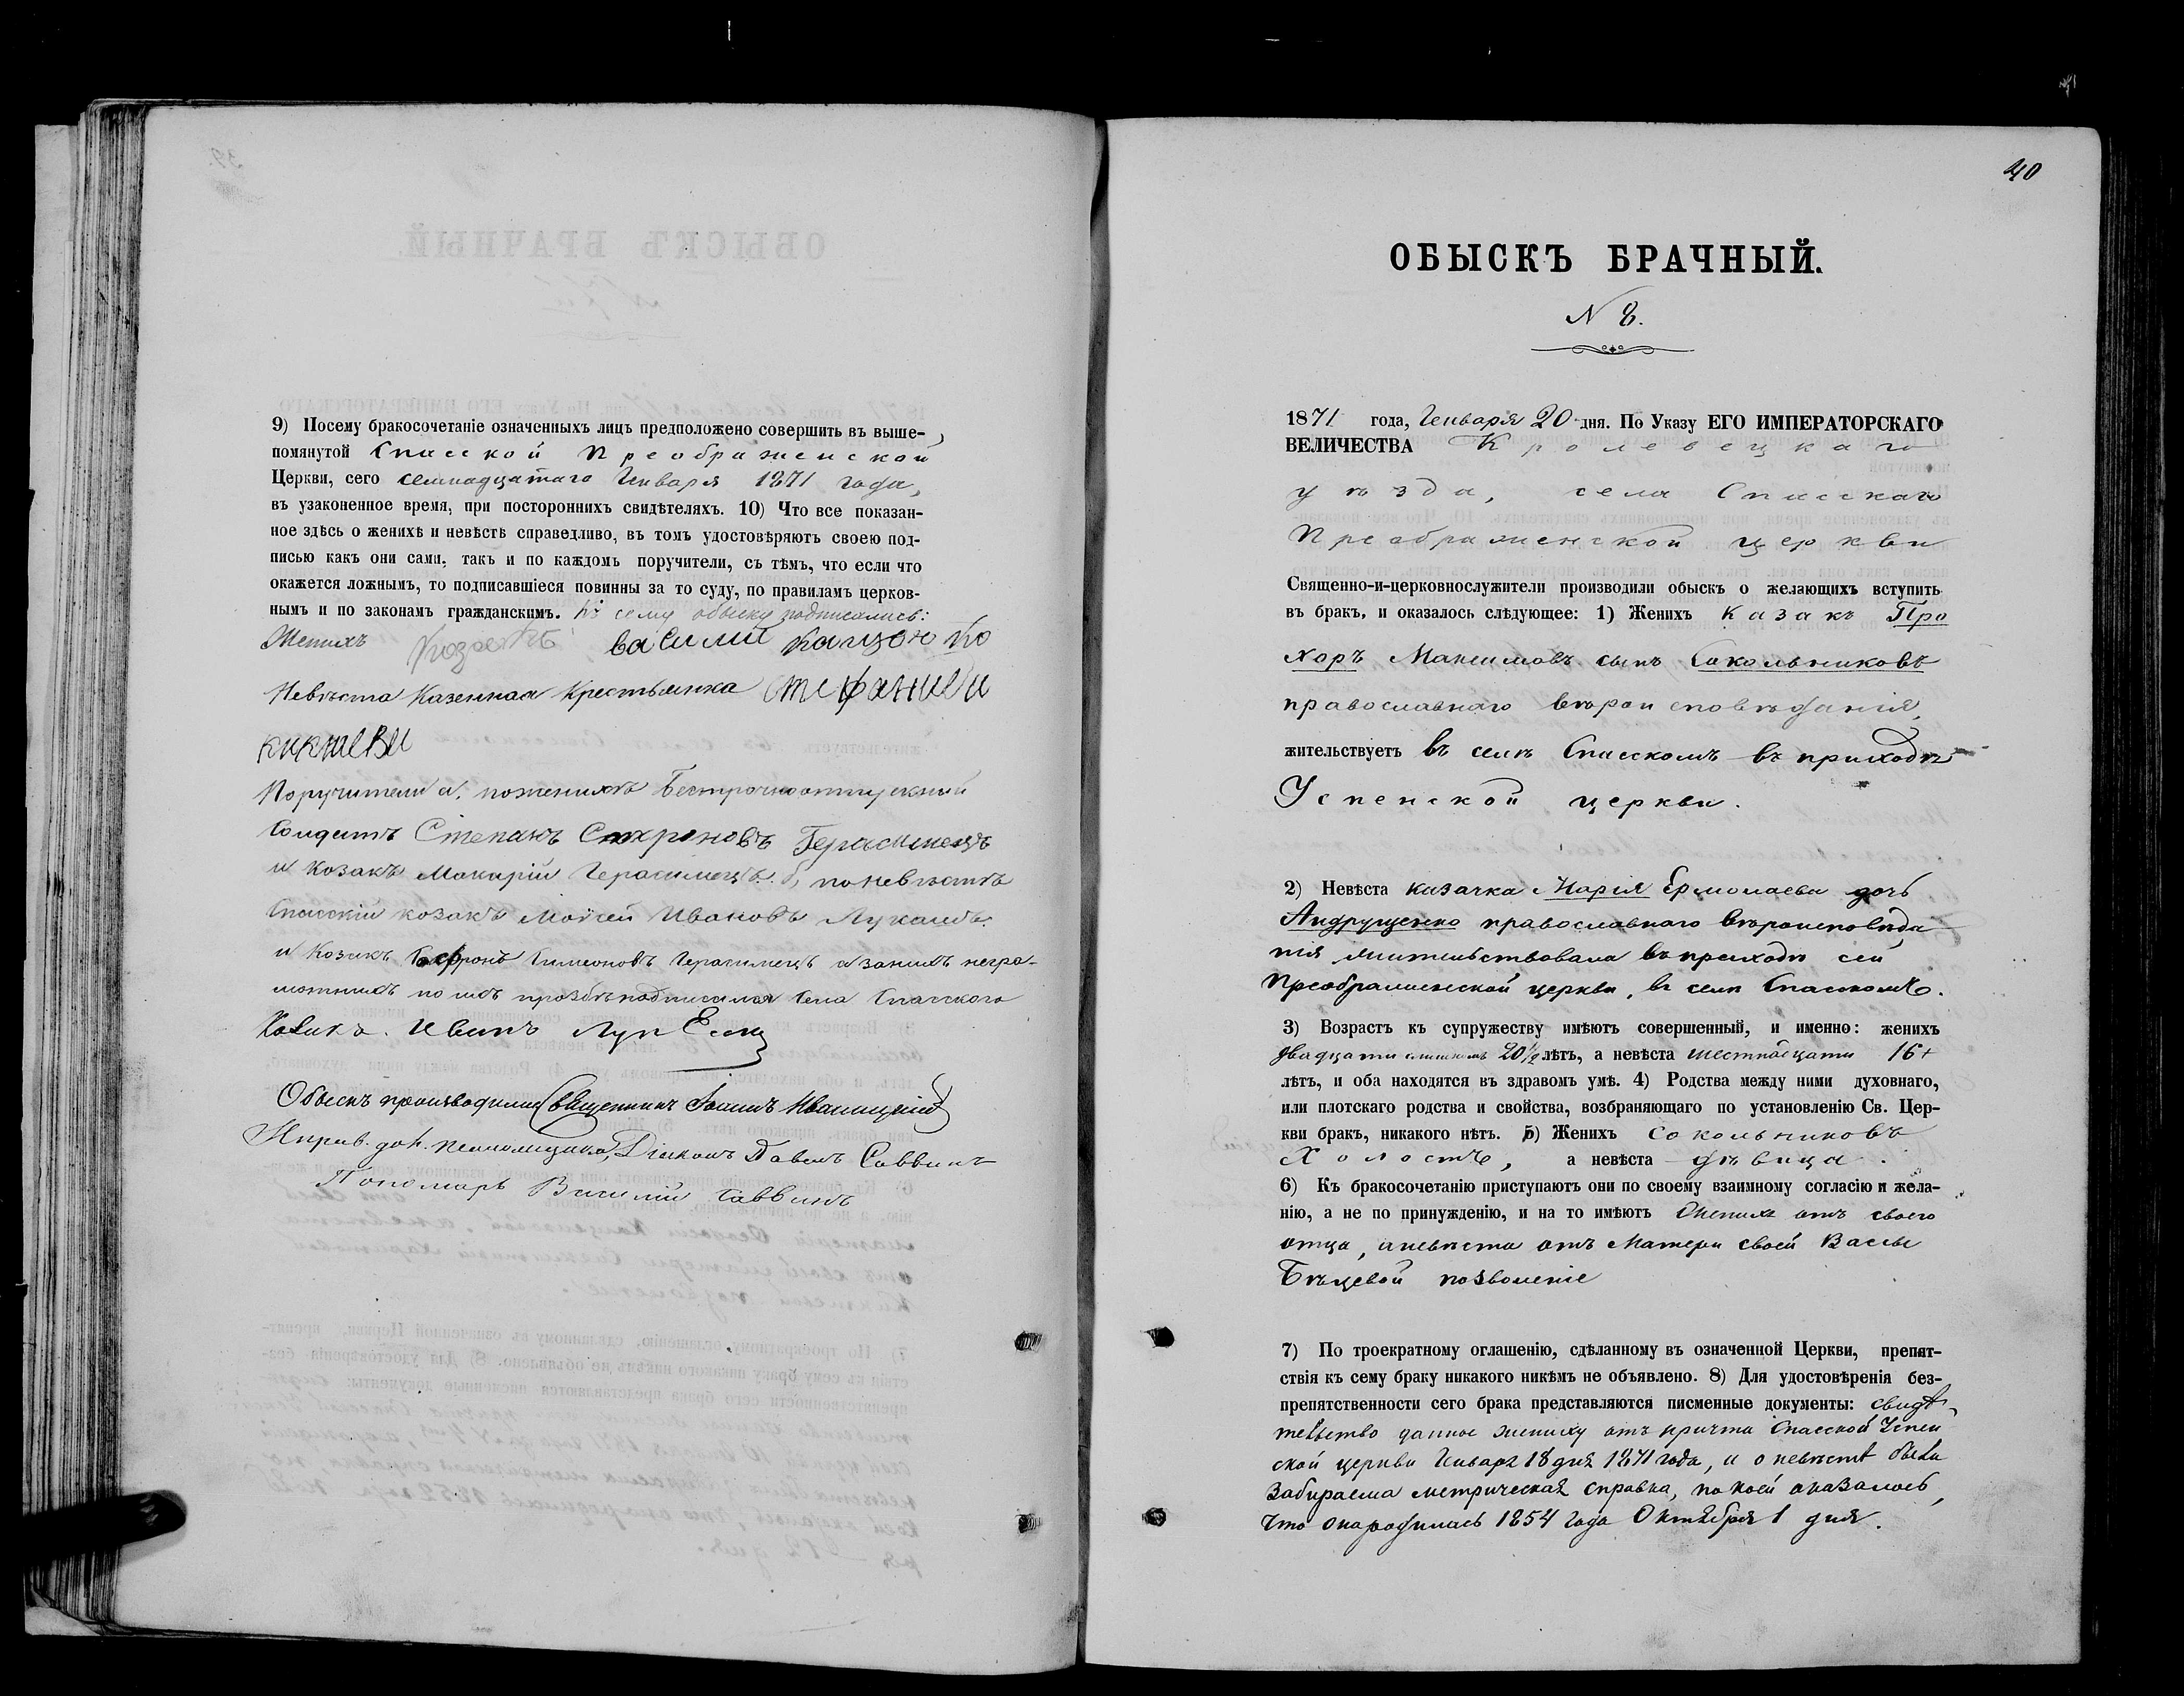 9) Посему бракосочетаніе означенныхъ лицъ предположено совершить въ выше-
помянутой Спасской Преображенской
Церкви, сего семнадцатаго Генваря 1871 года,
въ узаконенное время, при постороннихъ свидѣтеляхъ. 10) Что все показан-
ное здѣсь о женихѣ и невѣстѣ справедливо, въ томъ удостовѣряютъ своею под-
писью какъ они сами, такъ и по каждомъ поручители, съ тѣмъ, что если что
окажется ложнымъ, то подписавшіеся повинны за то суду, по правиламъ церков-
нымъ и по законамъ гражданскимъ. Къ сему обыску подписались:
Женихъ василий
Невѣста Казенная Крестьянка
Поручители а, по женихѣ
Солдатъ Степанъ Герасимецъ
и Козакъ Макарій Герасимецъ. б, по невѣстѣ
Спасскій козакъ Моѵсей Ивановъ Лукашъ.
и Козакъ Софронъ Симеоновъ Герасимецъ а за нихъ негра-
мотныхъ по ихъ прозбѣ подписался села Спасского
Козакъ. Иванъ
Обыскъ производили Священникъ Іоаннъ
Діаконъ Павелъ Саввинъ
Пономарь Василій Саввинъ
40
ОБЫСКЪ БРАЧНЫЙ.
N 8.
1871 года, Генваря 20 дня. По Указу ЕГО ИМПЕРАТОРСКАГО
ВЕЛИЧЕСТВА Кролевецкаго
уѣзда, села Спасскаго
Преображенской церкви
Священно-и-церковнослужители производили обыскъ о желающихъ вступить
въ бракъ, и оказалось слѣдующее: 1) Женихъ Казакъ Про
хоръ Максимовъ сынъ Сокольниковъ
православнаго вѣроисповѣданія,
жительствуетъ въ селѣ Спасскомъ въ приходѣ
Успенской церкви.
2) Невѣста казачка Марія Ермолаева дочь
Андрущенко православнаго вѣроисповѣда
нія жительствовала въ приходѣ сей
Преображенской церкви, въ селѣ Спасскомъ.
3) Возрастъ къ супружеству имѣютъ совершенный, и именно: женихъ
двадцати 20½ лѣтъ, а невѣста шестнадцати 16+
лѣтъ, и оба находятся въ здравомъ умѣ. 4) Родства между ними духовнаго,
или плотскаго родства и свойства, возбраняющаго по установленію Св. Цер-
кви бракъ, никакого нѣтъ. 5) Женихъ Сокольниковъ
Холостъ, а невѣста дѣвица.
6) Къ бракосочетанію приступаютъ они по своему взаимному согласію и жела-
нію, а не по принужденію, и на то имѣютъ Женихъ отъ своего
отца, а невѣста отъ Матери своей Вассы
Бѣцевой позволеніе
7) По троекратному оглашенію, сдѣланному въ означенной Церкви, препят-
ствія къ сему браку никакого никѣмъ не объявлено. 8) Для удостовѣренія без-
препятственности сего брака представляются писменные документы: свидѣ-
тельство данное жениху отъ причта Спасской Успен
ской церкви Генваря 18 дня 1871 года, и о невѣстѣ была
забираема метрическая справка, по коей оказалось,
что она родилась 1854 года Октября 1 дня.